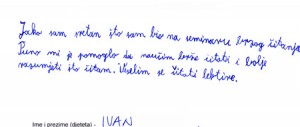 Jako sam sretan što sam bio na seminaru brzog čitanja.
Puno mi je pomoglo da naučim brže čitati i bolje
razumjeti što čitam. Veselim se čitati lektire.
Ime i prezime (djeteta) - IVAN